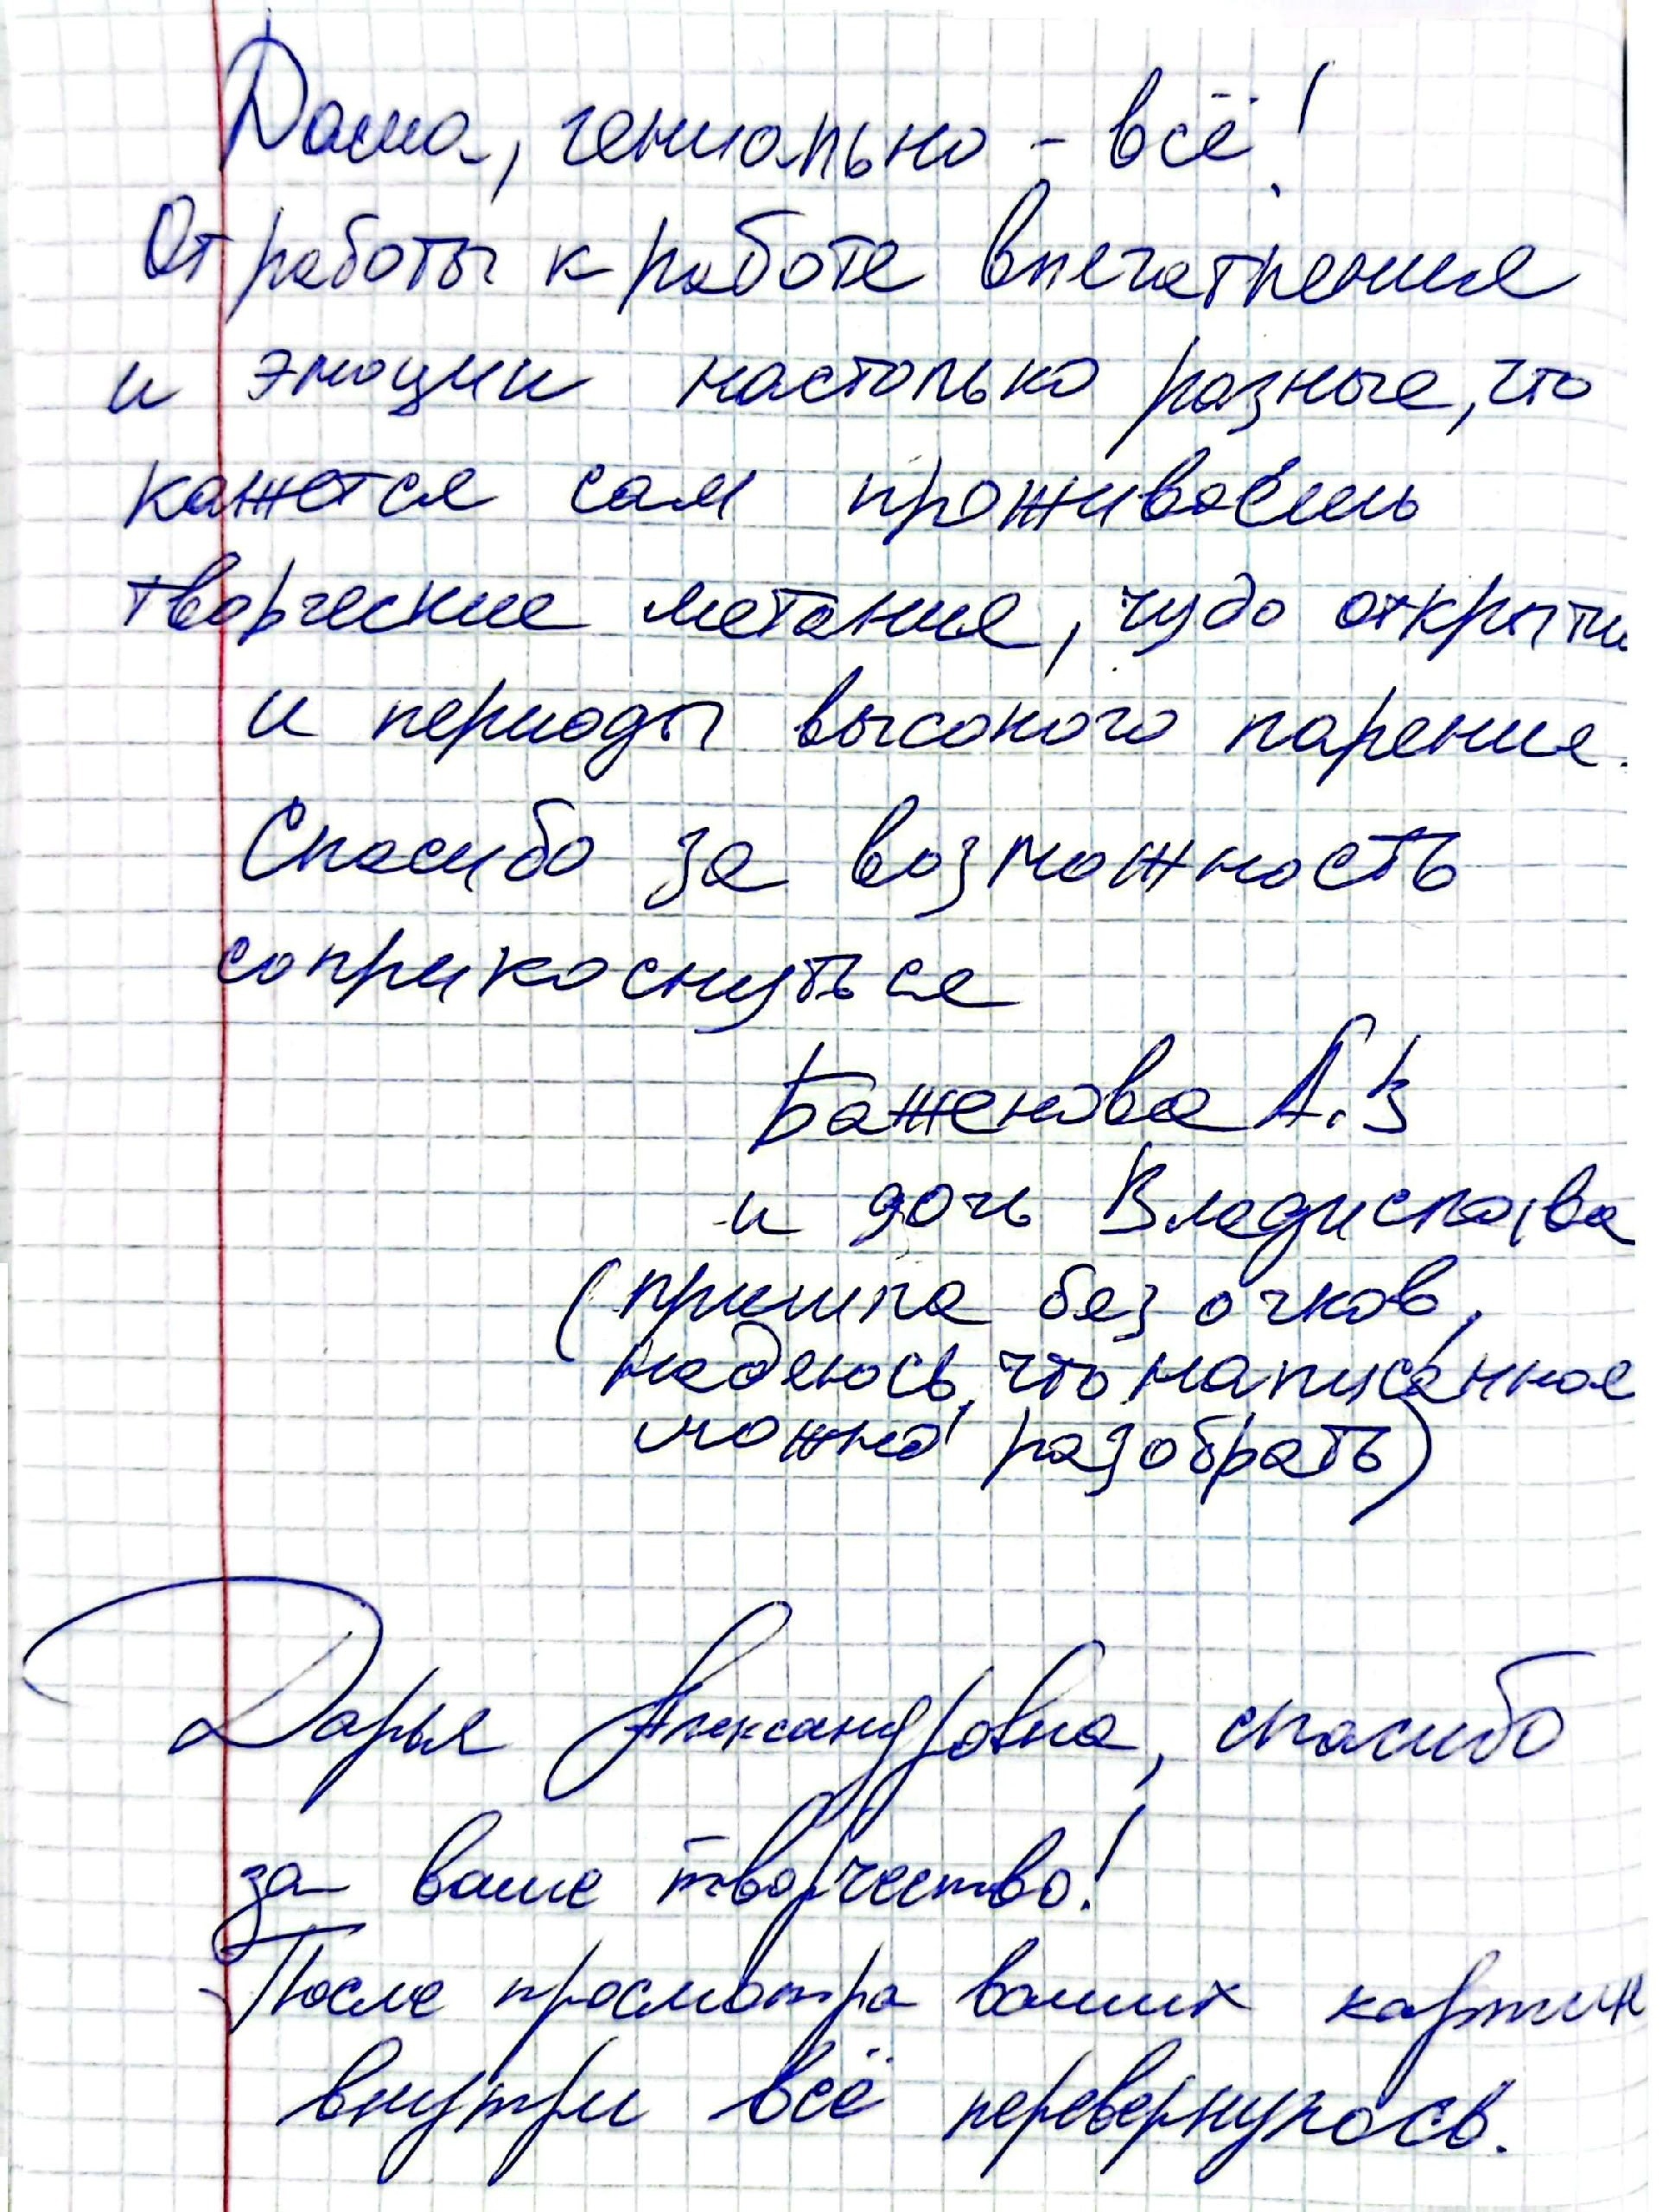 Даша, гениально - всё!
От работы к работе впечатления
и эмоции настолько разные, что
кажется сам проживаешь
творческие метания, чудо открыти
и периоды высокого парения.
Спасибо за возможность
соприкоснуться
Баженова А.В
и дочь Владислава
(пришла без очков,
надеюсь, что написанное
можно разобрать)
Дарья Александровна, спасибо
за ваше творчество!
После просмотра ваших картин
внутри всё перевернулось.